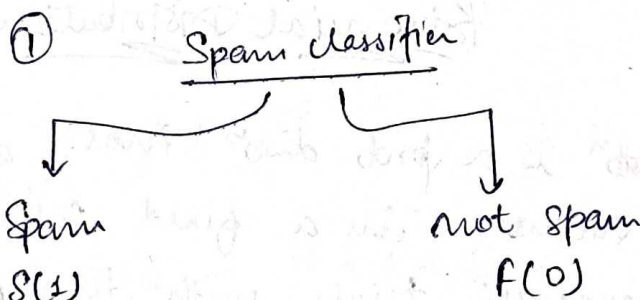 ① Spam classifier
Spam not spam
S(1) F(0)